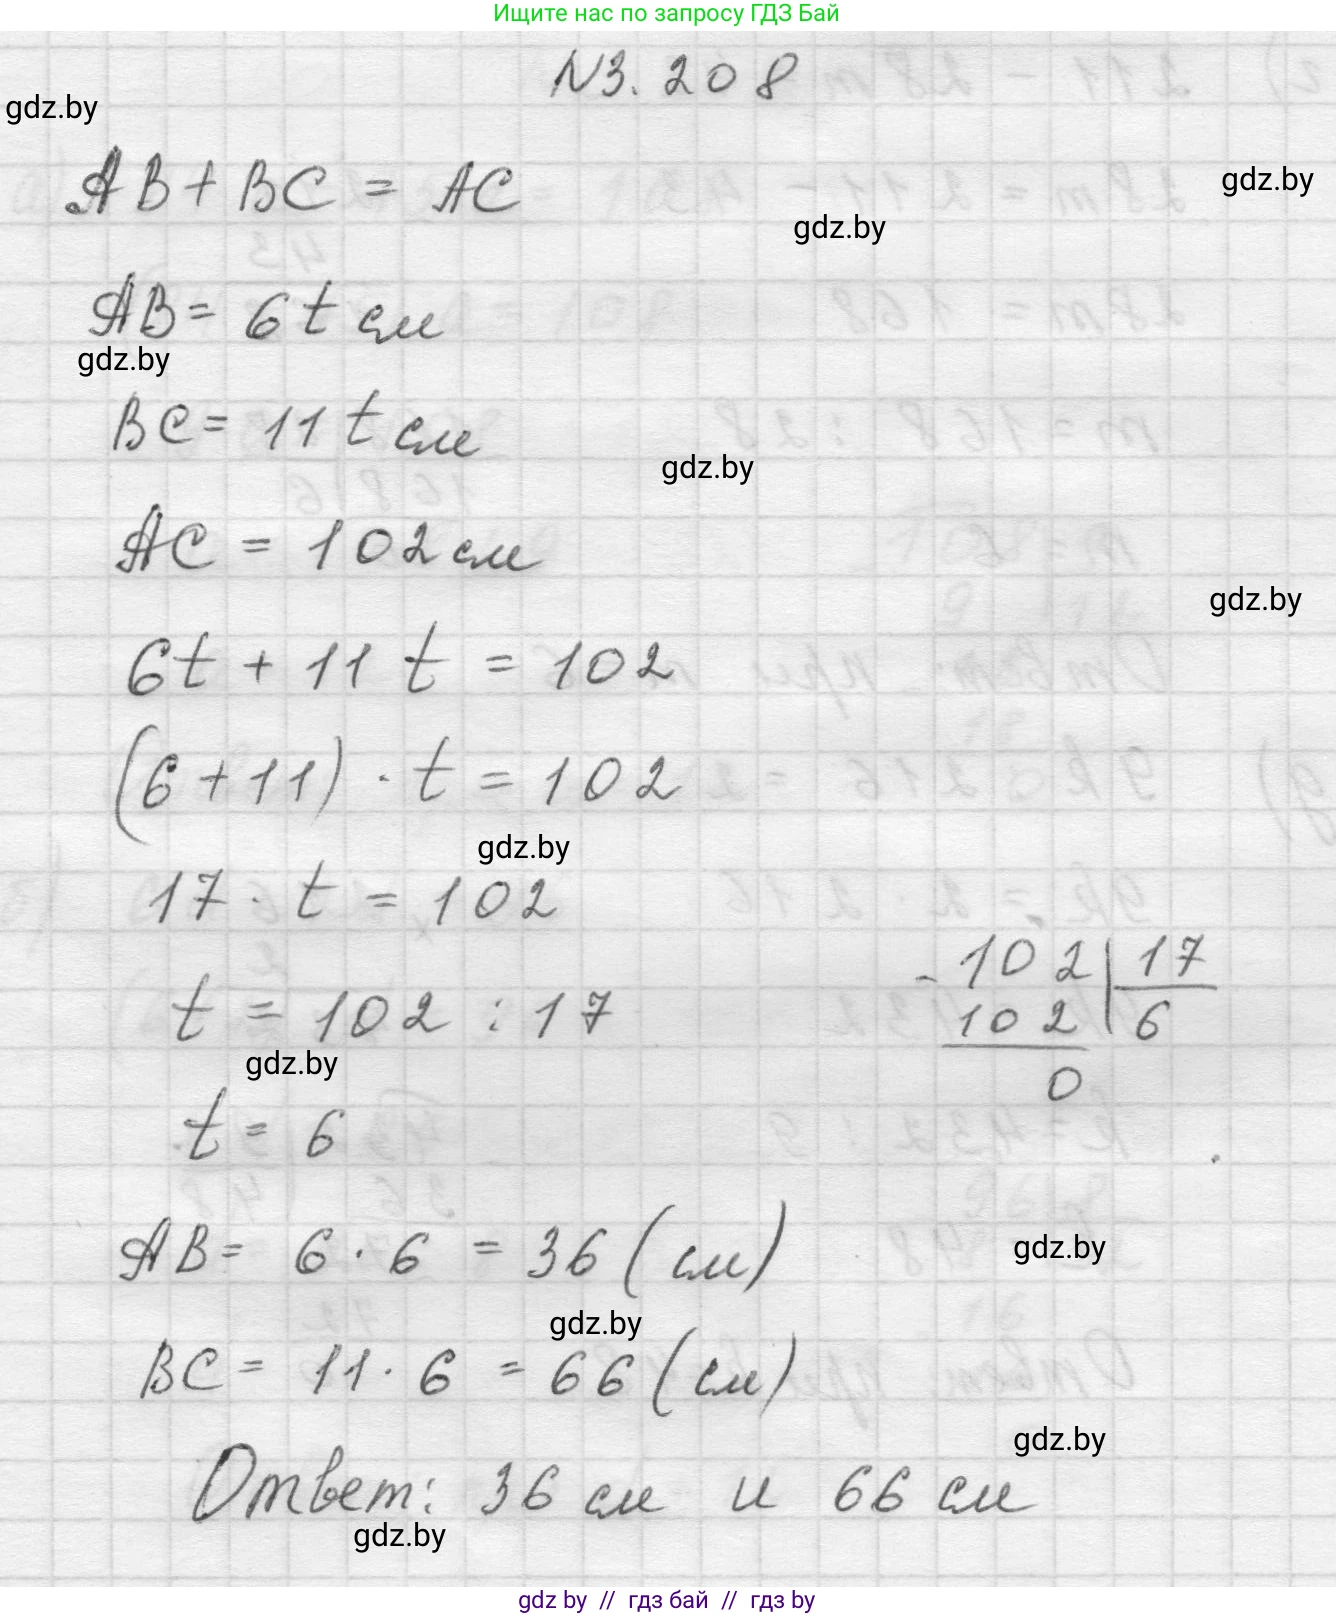 Ищите нас по запросу ГДЗ Бай
N3.208
gdz.by
AB + BC = AC
gdz.by
gdz.by
AB = 6t см
gdz.by
BC = 11t см
gdz.by
AC = 102 см
gdz.by
6t + 11t = 102
(6 + 11) · t = 102
gdz.by
17 · t = 102
t = 102 : 17
- 102 | 17
102 | 6
0
gdz.by
t = 6
AB = 6 · 6 = 36 (см)
gdz.by
gdz.by
BC = 11 · 6 = 66 (см)
gdz.by
Ответ: 36 см и 66 см
gdz.by
gdz by // гдз бай // гдз by